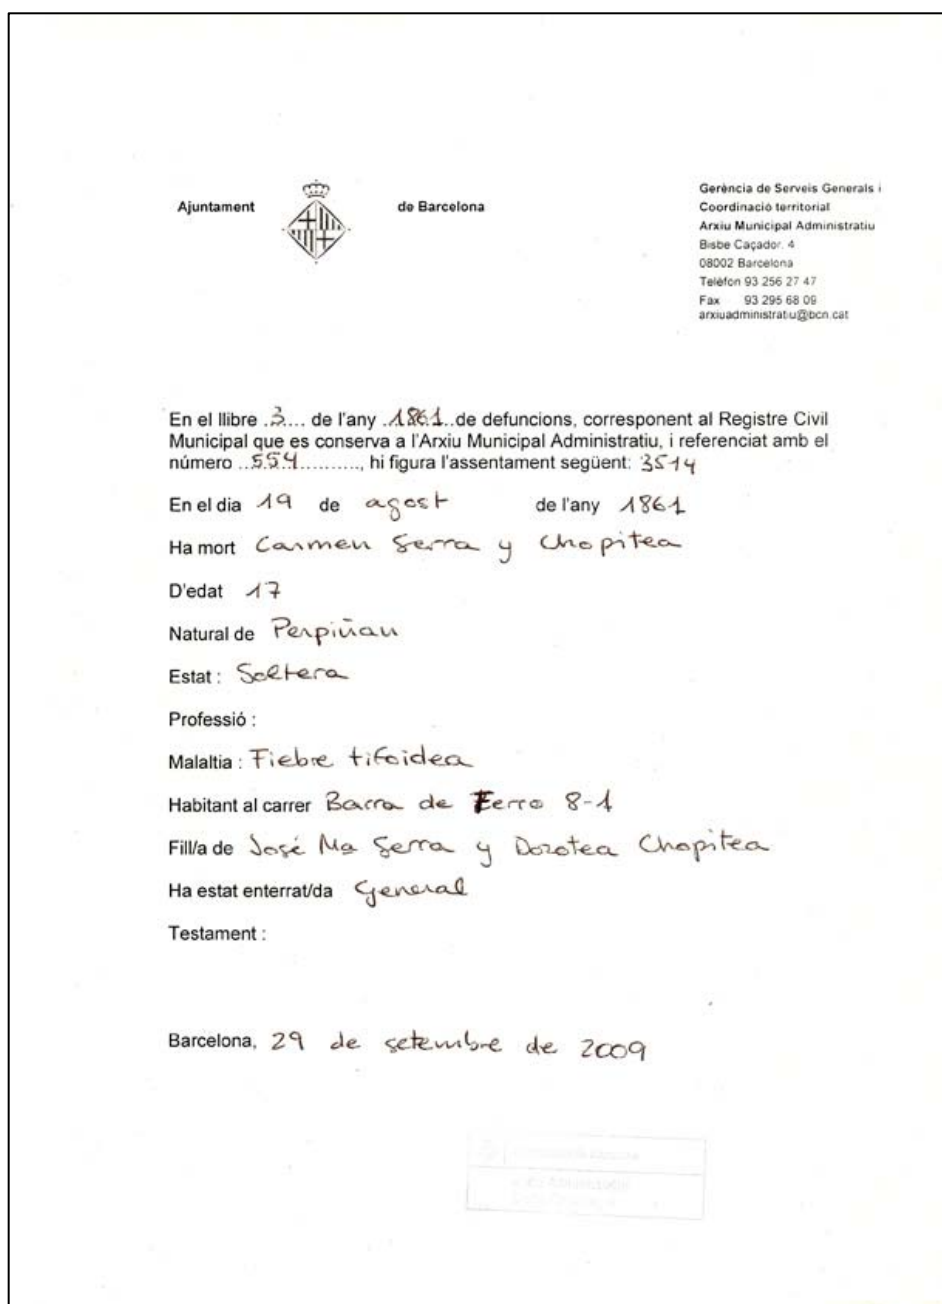 Ajuntament de Barcelona
Gerència de Serveis Generals i
Coordinació territorial
Arxiu Municipal Administratiu
Bisbe Caçador, 4
08002 Barcelona
Telèfon 93 256 27 47
Fax 93 295 68 09
arxiuadministratiu@bcn.cat
En el llibre .3.... de l'any .1861..de defuncions, corresponent al Registre Civil
Municipal que es conserva a l'Arxiu Municipal Administratiu, i referenciat amb el
número ..554.........., hi figura l'assentament següent: 3514
En el dia 19 de agost de l'any 1861
Ha mort Carmen Serra y Chopitea
D'edat 17
Natural de Perpiñan
Estat : Soltera
Professió :
Malaltia : Fiebre tifoidea
Habitant al carrer Barra de Ferro 8-1
Fill/a de José Ma Serra y Dorotea Chopitea
Ha estat enterrat/da General
Testament :
Barcelona, 29 de setembre de 2009